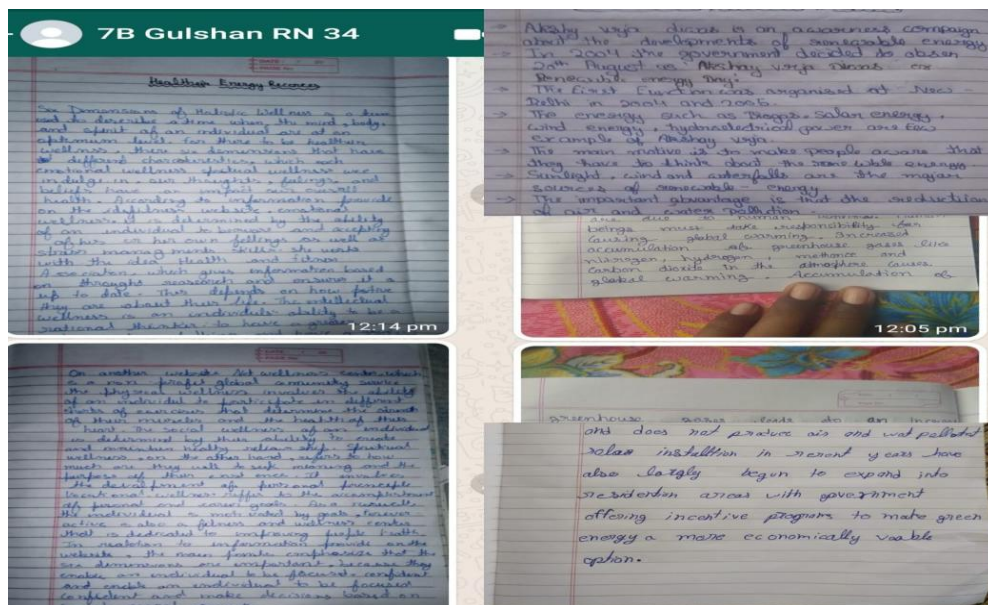 7B Gulshan RN 34
Healthier Energy Recorces
Sex Demansions of Holistic Wellness is a term
used to describe a time when the mind, body,
and spirit of an individual are at an
optimum level. for there to be healthier
wellness there six demensions that have
different characteristics, which each
emotional wellness
indulg in our thoughts, and
beliefs have an impact our overall
health. According to information provide
on the website, emotional
wellness it is determined by the ability
of an individual to and accepting
of his or her own fellings as well as
skills she work
with the idea Health and fitness
Association, which gives information based
on throught research and ensure it is
up to date. This depends on how
they are about their life. The intellectual
wellness is an individual's ability to be a
national thinker to have
12:14 pm
On another website wellness center which
is a non profet global community service
the physical wellness involves the ability
of an individual to participate in different
of exercises that determine the
of their muscles and the health of their
heart. The social wellness of an individual
is determined by their ability to create
and maintain healthy relationship. Spiritual
wellness, on the other hand, refers to how
much are they will to seek meaning and the
purpose of their existence. It involves
the development of personal princeple
Vocational wellness reffer to the accomplishment
of personal and career goals. As a result
the individual is motivated by goals. forever
active is also a fitness and wellness center
that is dedicated to improving people health.
In realation to information provide on the
website, the main points emphasize that the
sex demensions are important, because they
enables an individual to be focused, confident
and enable an individual to be focused
confident and make decisions based on
→ Akshy urja diwas is an awareness compaign
about the developments of renewable energy
→ In 2004 the government decided to
20th August as Akshay urja Diwas or
Renewable energy Day.
→ The First Function was organised at New-
Delhi in 2004 and 2005.
→ The energy such as Biogas, Solar energy,
wind energy, hydroelectrical power are few
example of Akshay urja.
→ This main motive is to make people aware that
they have to think about the renewable energy
Sunlight, wind and waterfalls are the major
sources of renewable-energy
→ The important advantage is that the reduction
of air and water pollution.
are due to human
beings must take responsibility for
causing global warming. Increased
accumulation of greenhouse gases like
nitrogen, hydrogen, methance and
carbon dioxide in the atmosphere causes
global warming. Accumulation of
12:05 pm
greenhouse gases leads to an
and does not produce air and wat pollutat
solar instalttion in resent years have
also largly begun to expand into
residention areas with government
offering incentive programs to make green
energy a more economically viable
option.